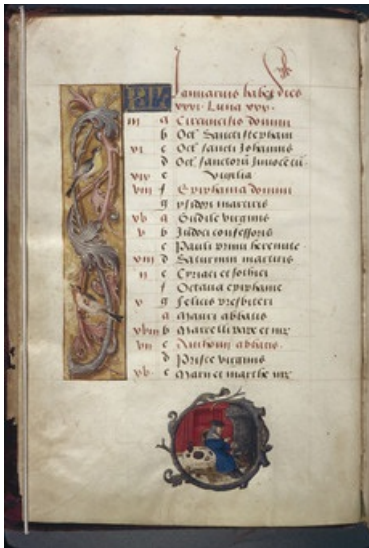 Januarius habet dies
xxxi. Luna xxx.
KL
iii a Circuncisio domini
b Oct' Sancti stephani
xi c Oct' sancti Johannis
d Oct' sanctorum Innocetū
xix e Vigilia
viii f Epiphania domini
g ysidori martiris
xvi a Gudile virginis
v b Judoci confessoris
c Pauli primi heremite
xiii d Saturnini martiris
ii e Ciriaci et sothici
f Octava epiphanie
x g felicis presbiteri
a Mauri abbatis
xviii b Marcelli pape et mr
vii c Anthonii abbatis.
d Prisce virginis
xv e Marii et marthe mr